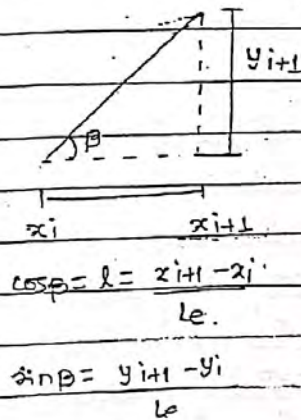 yi+1
β
xi xi+1
cosβ = l = xi+1 - xi
le.
sinβ = yi+1 - yi
le